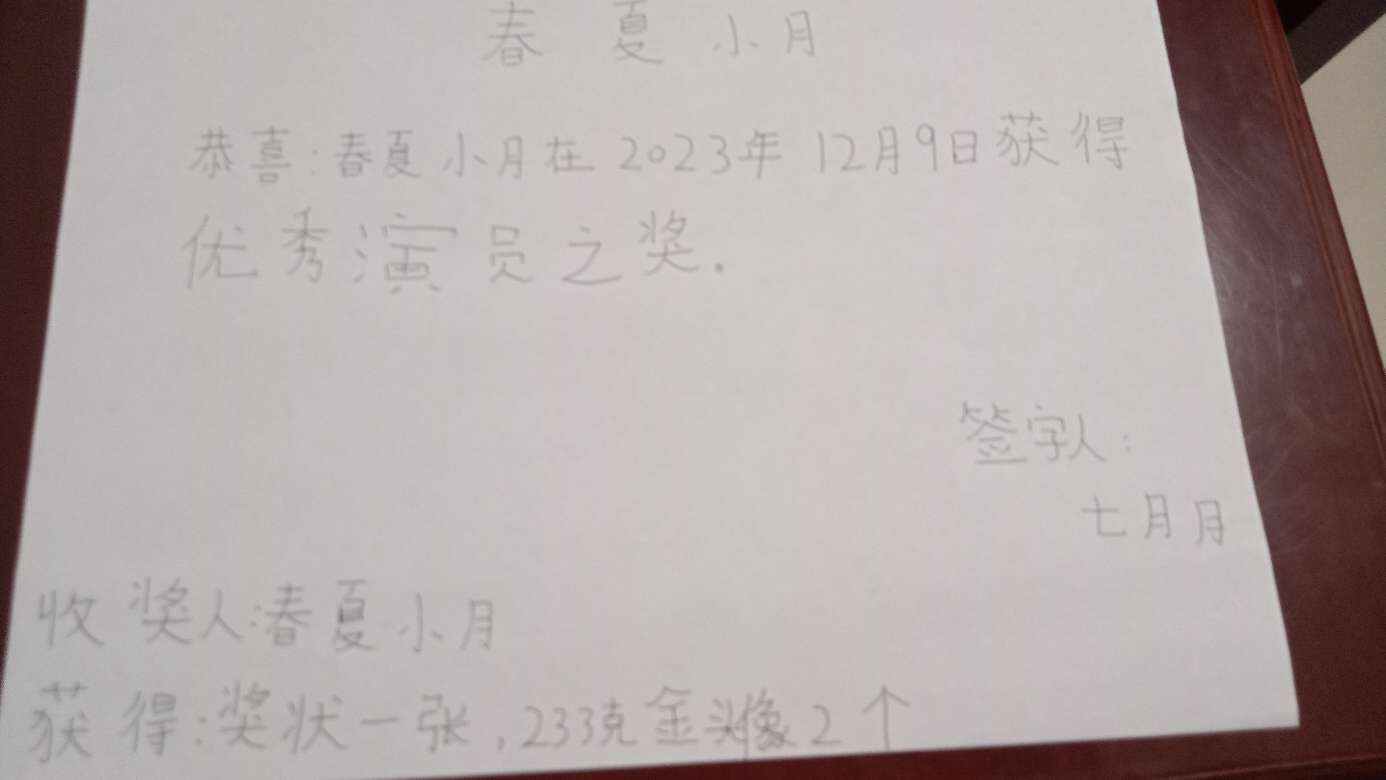 春夏小月
恭喜:春夏小月在2023年12月9日获得
优秀演员之奖.
签字人:
七月月
收奖人:春夏小月
获得:奖状一张,233克金头像2个